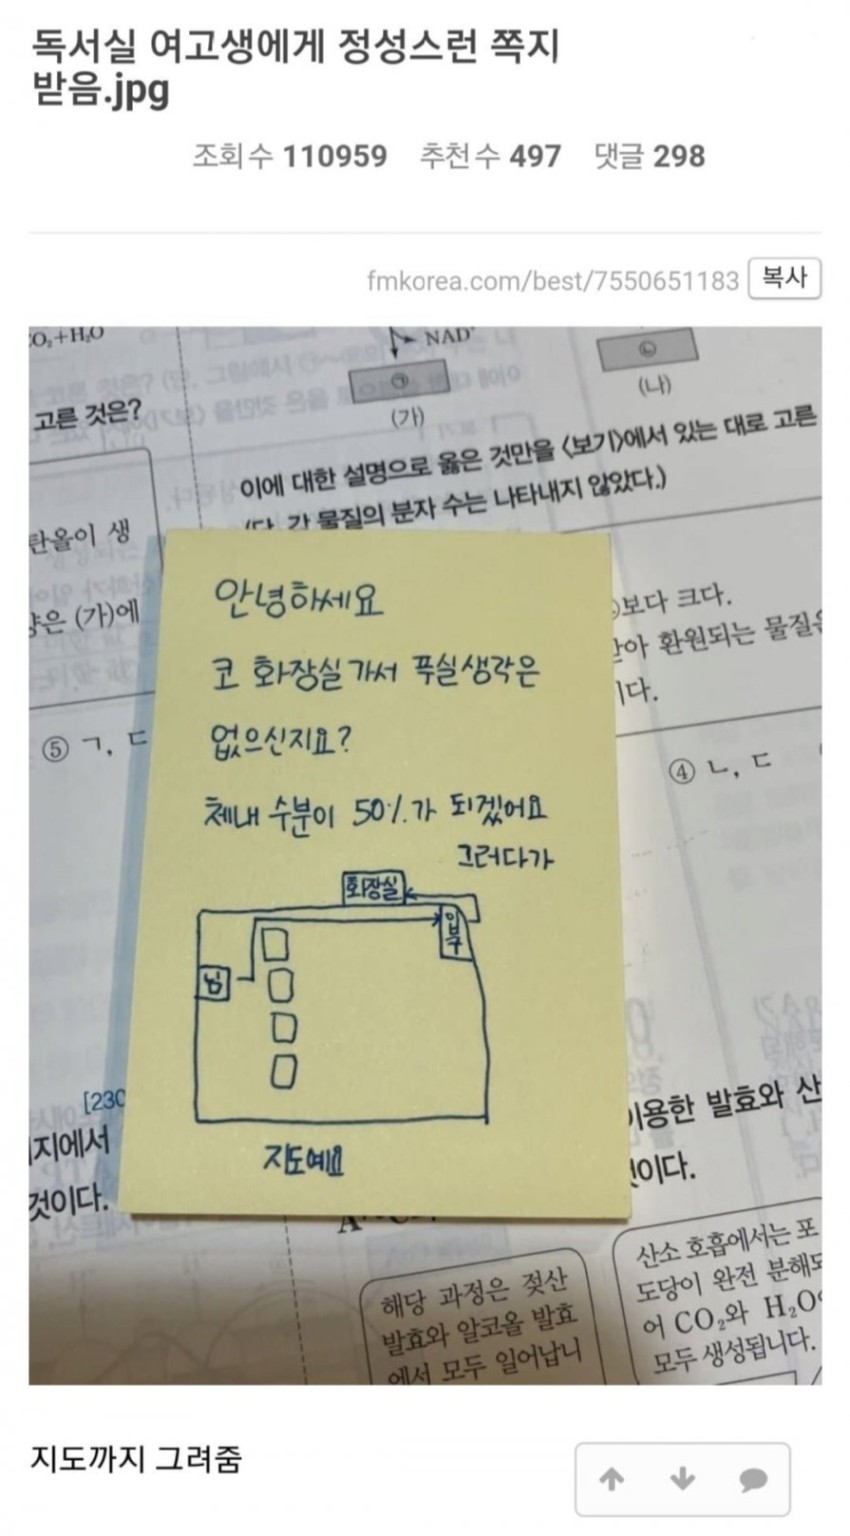 독서실 여고생에게 정성스런 쪽지
받음.jpg
조회수 110959 추천수 497 댓글 298
fmkorea.com/best/7550651183 복사
CO₂+H₂O
NAD⁺
㉠
㉡
고른 것은?
(가)
(나)
이에 대한 설명으로 옳은 것만을 <보기>에서 있는 대로 고른
(단, 각 물질의 분자 수는 나타내지 않았다.)
탄올이 생
안녕하세요
보다 크다.
은 (가)에
받아 환원되는 물질은
코 화장실가서 푸실생각은
이다.
⑤ ㄱ, ㄷ
없으신지요?
④ ㄴ, ㄷ
체내 수분이 50%가 되겠어요
그러다가
화장실
입구
님
지도예요
[230
지에서
이용한 발효와 산
것이다.
것이다.
해당 과정은 젖산
발효와 알코올 발효
에서 모두 일어납니
산소 호흡에서는 포
도당이 완전 분해되
어 CO₂와 H₂O
모두 생성됩니다.
지도까지 그려줌